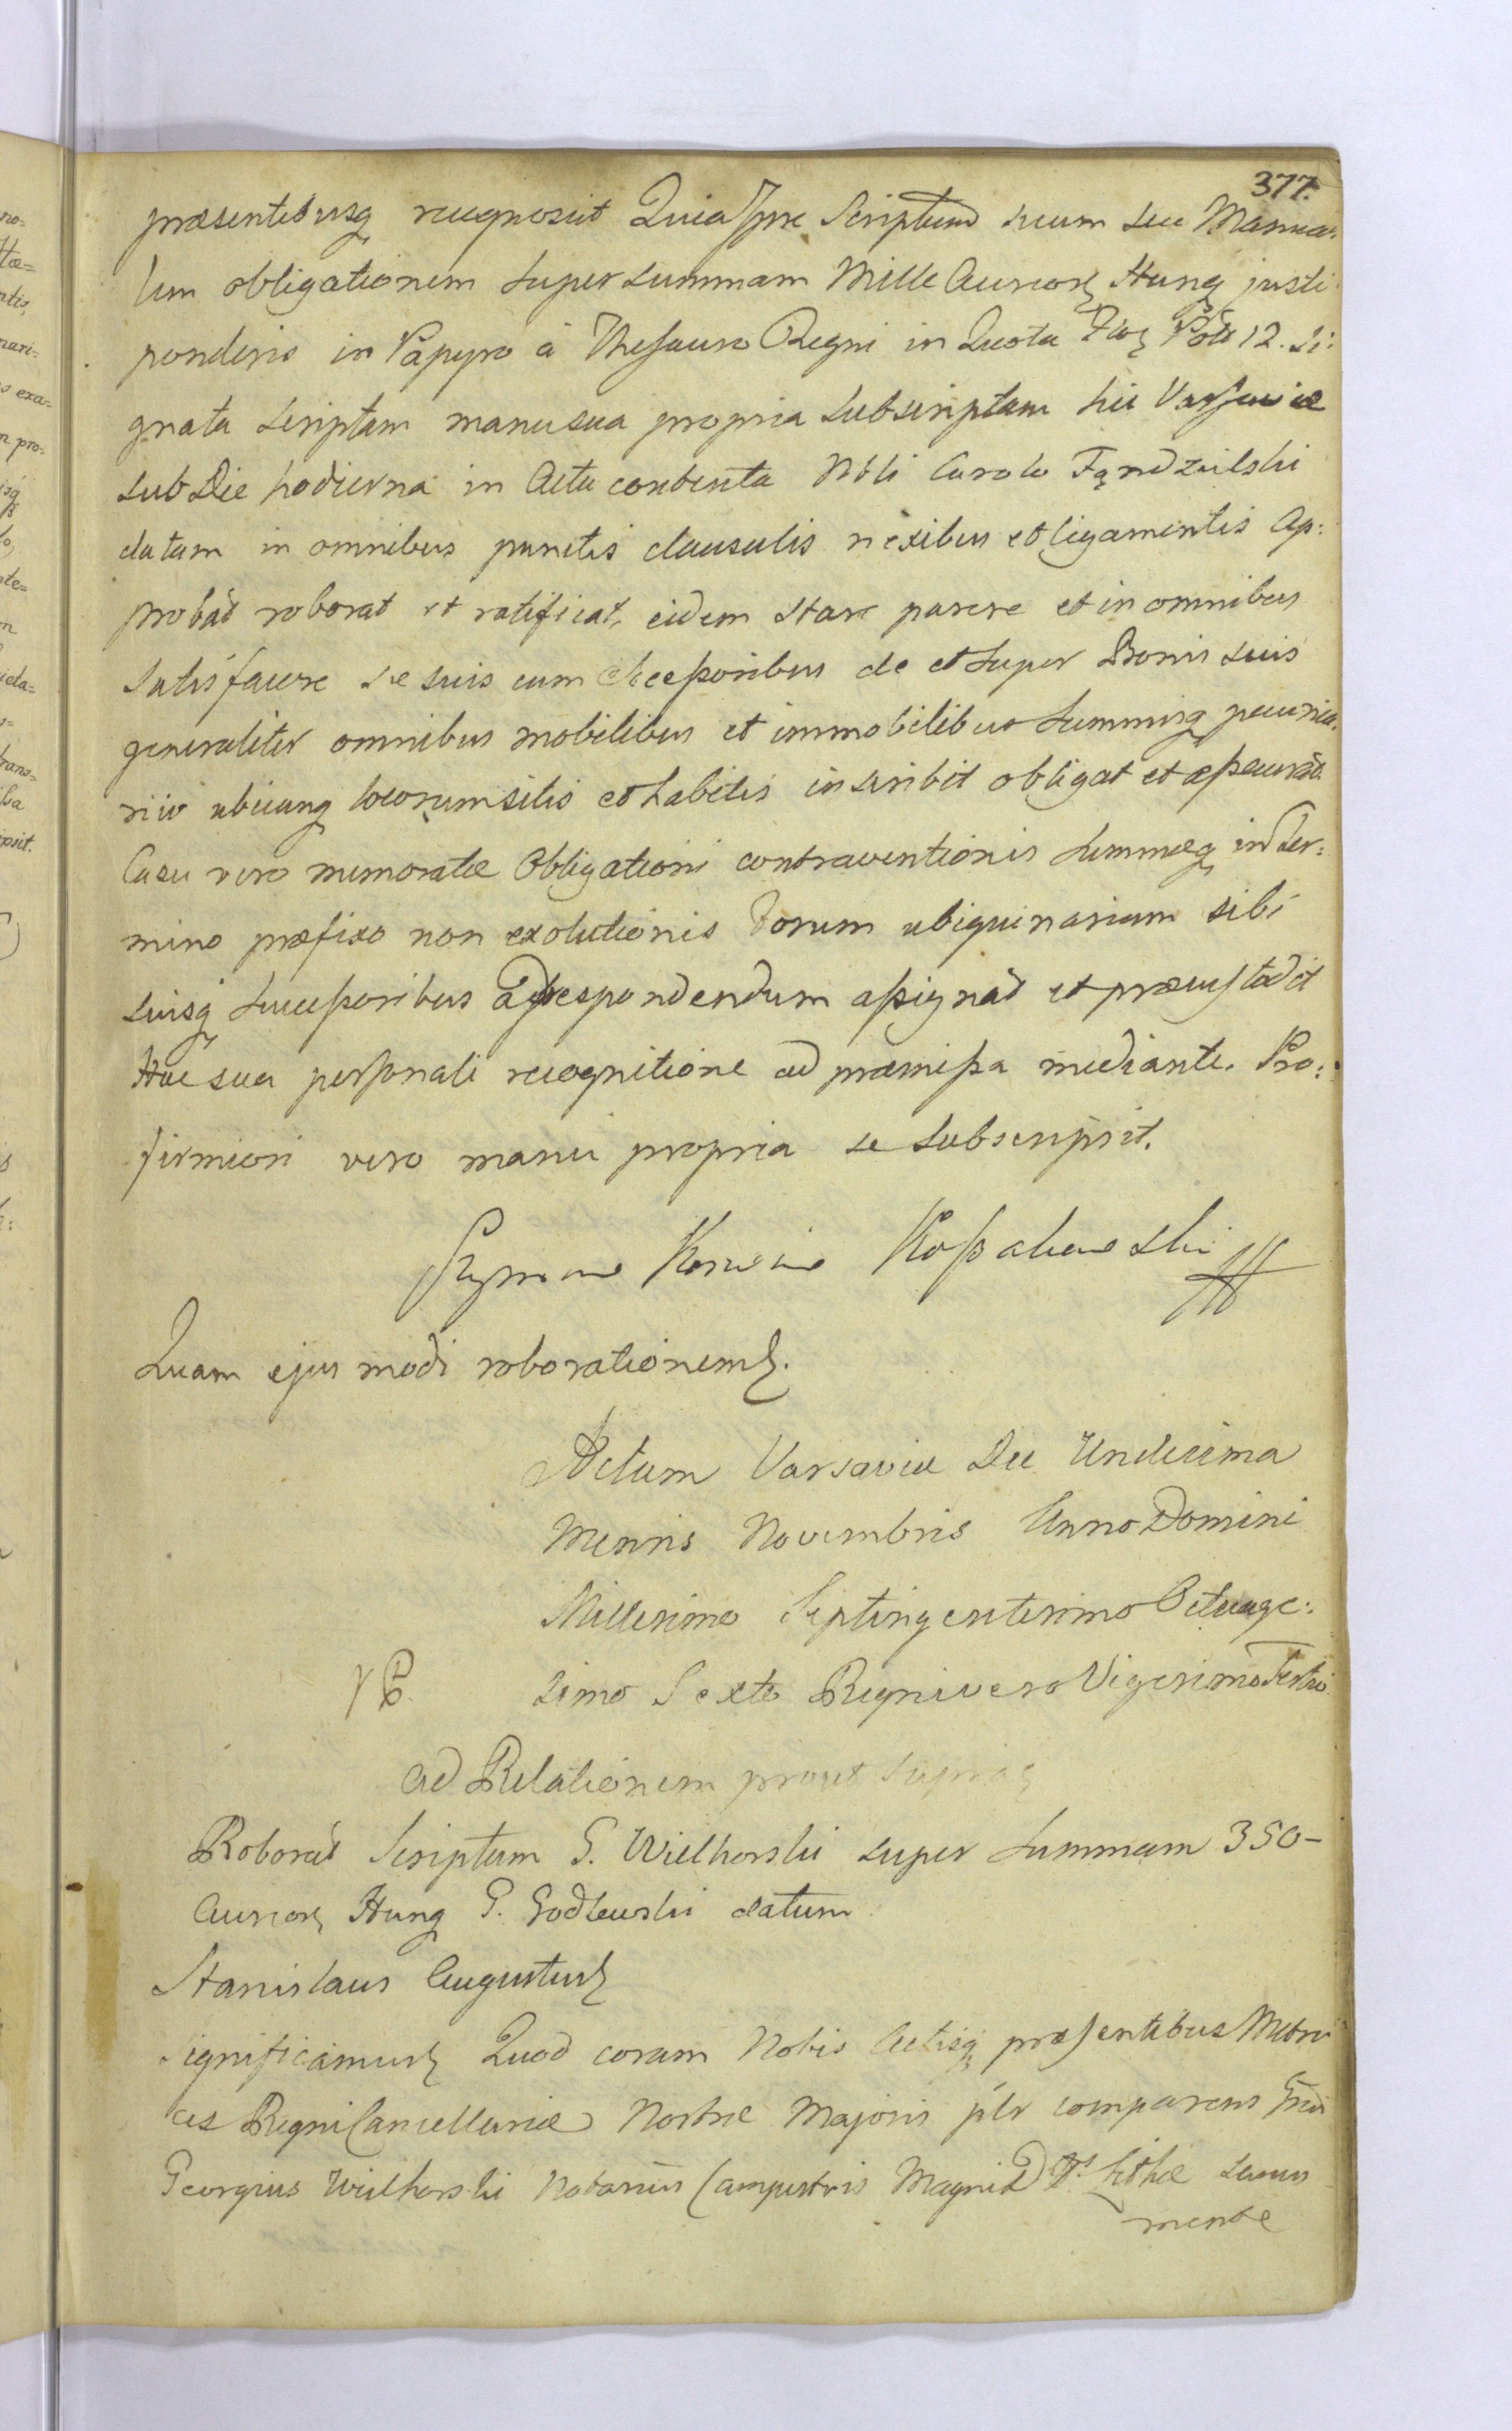 377.
præsentibusq recognovit Quia Ipse Scriptum suum seu Manua-
lem obligationem super summam Mille Aureor Hung justi
ponderis in Papyro à Thesauro Regni in Quota Flor Pol 12. si:
gnata scriptam manu sua propria subscriptam hic Varsaviæ
sub Die hodierna in Actu contenta Nbli Carolo Fądzilski
datam in omnibus punctis clausulis nexibus et ligamentis Ap:
probat roborat et ratificat, eidem stare parere et in omnibus
satisfacere se suis cum succeßoribus de et super Bonis suis
generaliter omnibus mobilibus et immobilibus summisq pecunia-
riis ubicunq locorum sitis et habitis inscribit obligat et aßecurat
Casu vero memoratæ Obligationi contraventionis summæq in Ter:
mino præfixo non exolutionis Forum ubiquinarium sibi
suisq succeßoribus ad respondendum aßignat et præcustodit
Hac sua personali recognitione ad præmißa mediante. Pro:
firmiori vero manu propria se subscripsit.
Szymon Korwin Koßakowski
Quam ejus modi roborationem
Actum Varsaviæ Die Undecima
Mensis Novembris Anno Domini
Millesimo Septingentesimo Octuage:
simo Sexto Regni vero Vigesimo Tertio
ad Relationem prout supra
Roborat Scriptum G. Wielhorski super summam 350-
Aureor Hung G. Godlewski datum
Stanislaus Augustus
Significamus Quod coram Nobis Actisq præsentibus Metri
ces Regni Cancellariæ Nostræ Majoris plr comparens
Georgius Wielhorski Notarius Campestris Magni D Lithæ sanus
mente